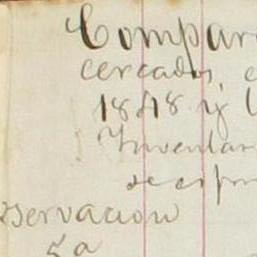 Compar
cercados, e
1848 y
Inventar
se esp
servacion
5a